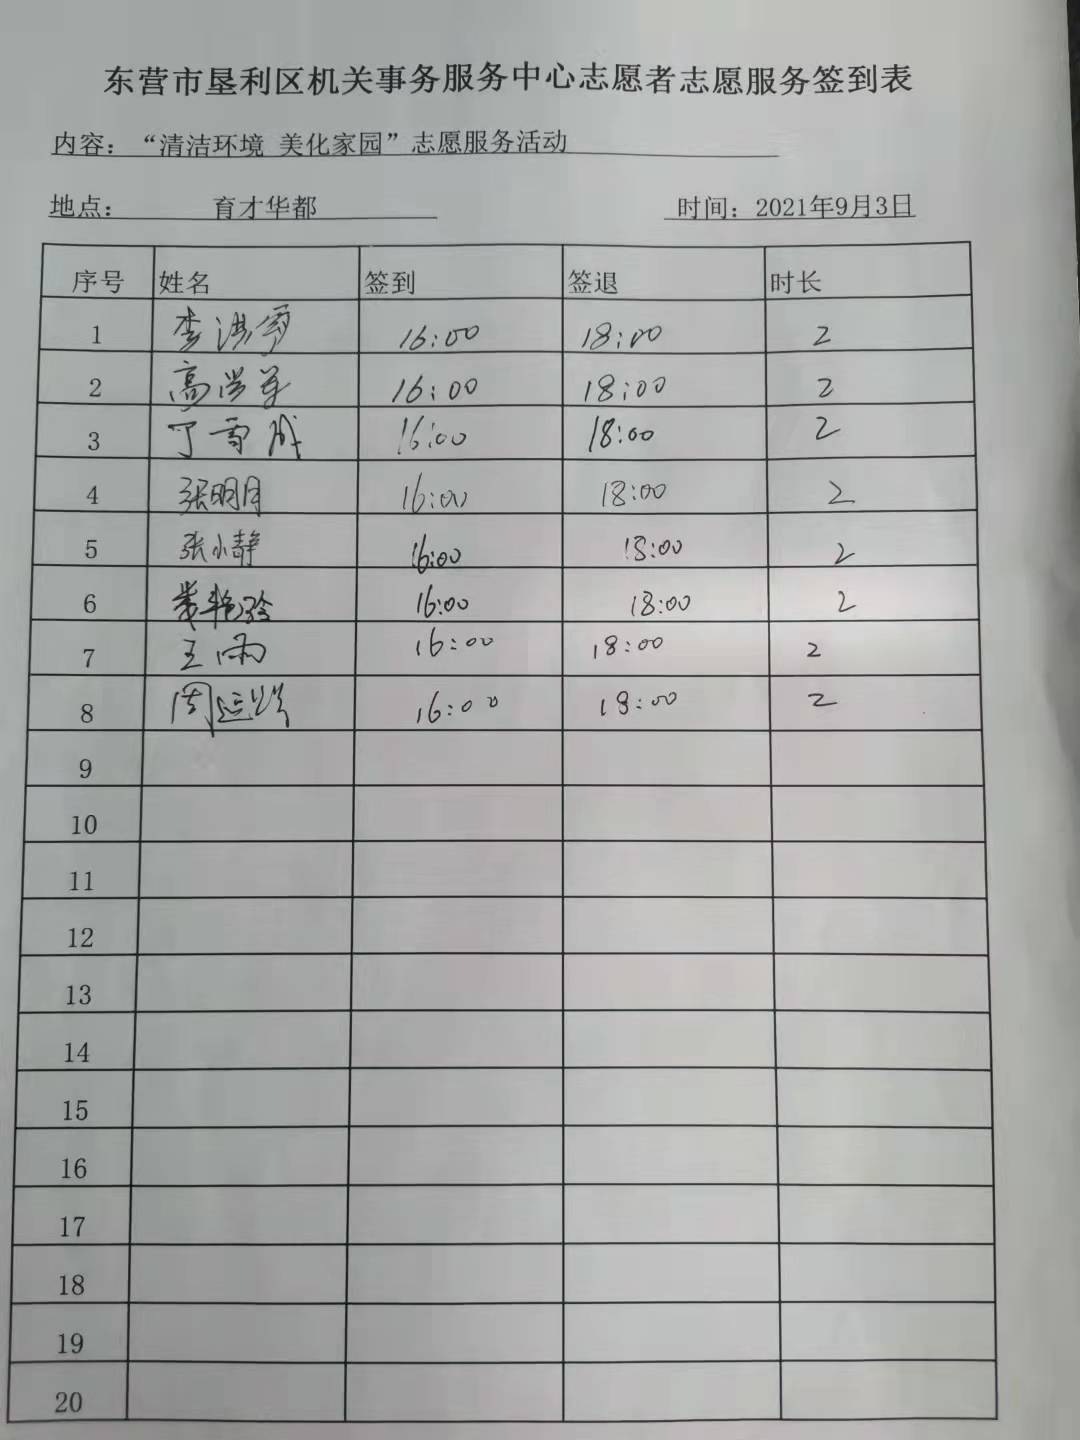 东营市垦利区机关事务服务中心志愿者志愿服务签到表
内容：“清洁环境 美化家园”志愿服务活动
地点： 育才华都 时间：2021年9月3日
序号 姓名 签到 签退 时长
1 李洪 16:00 18:00 2
2 高 16:00 18:00 2
3 丁雪成 16:00 18:00 2
4 张明月 16:00 18:00 2
5 张小静 16:00 18:00 2
6 16:00 18:00 2
7 王雨 16:00 18:00 2
8 周运 16:00 18:00 2
9
10
11
12
13
14
15
16
17
18
19
20